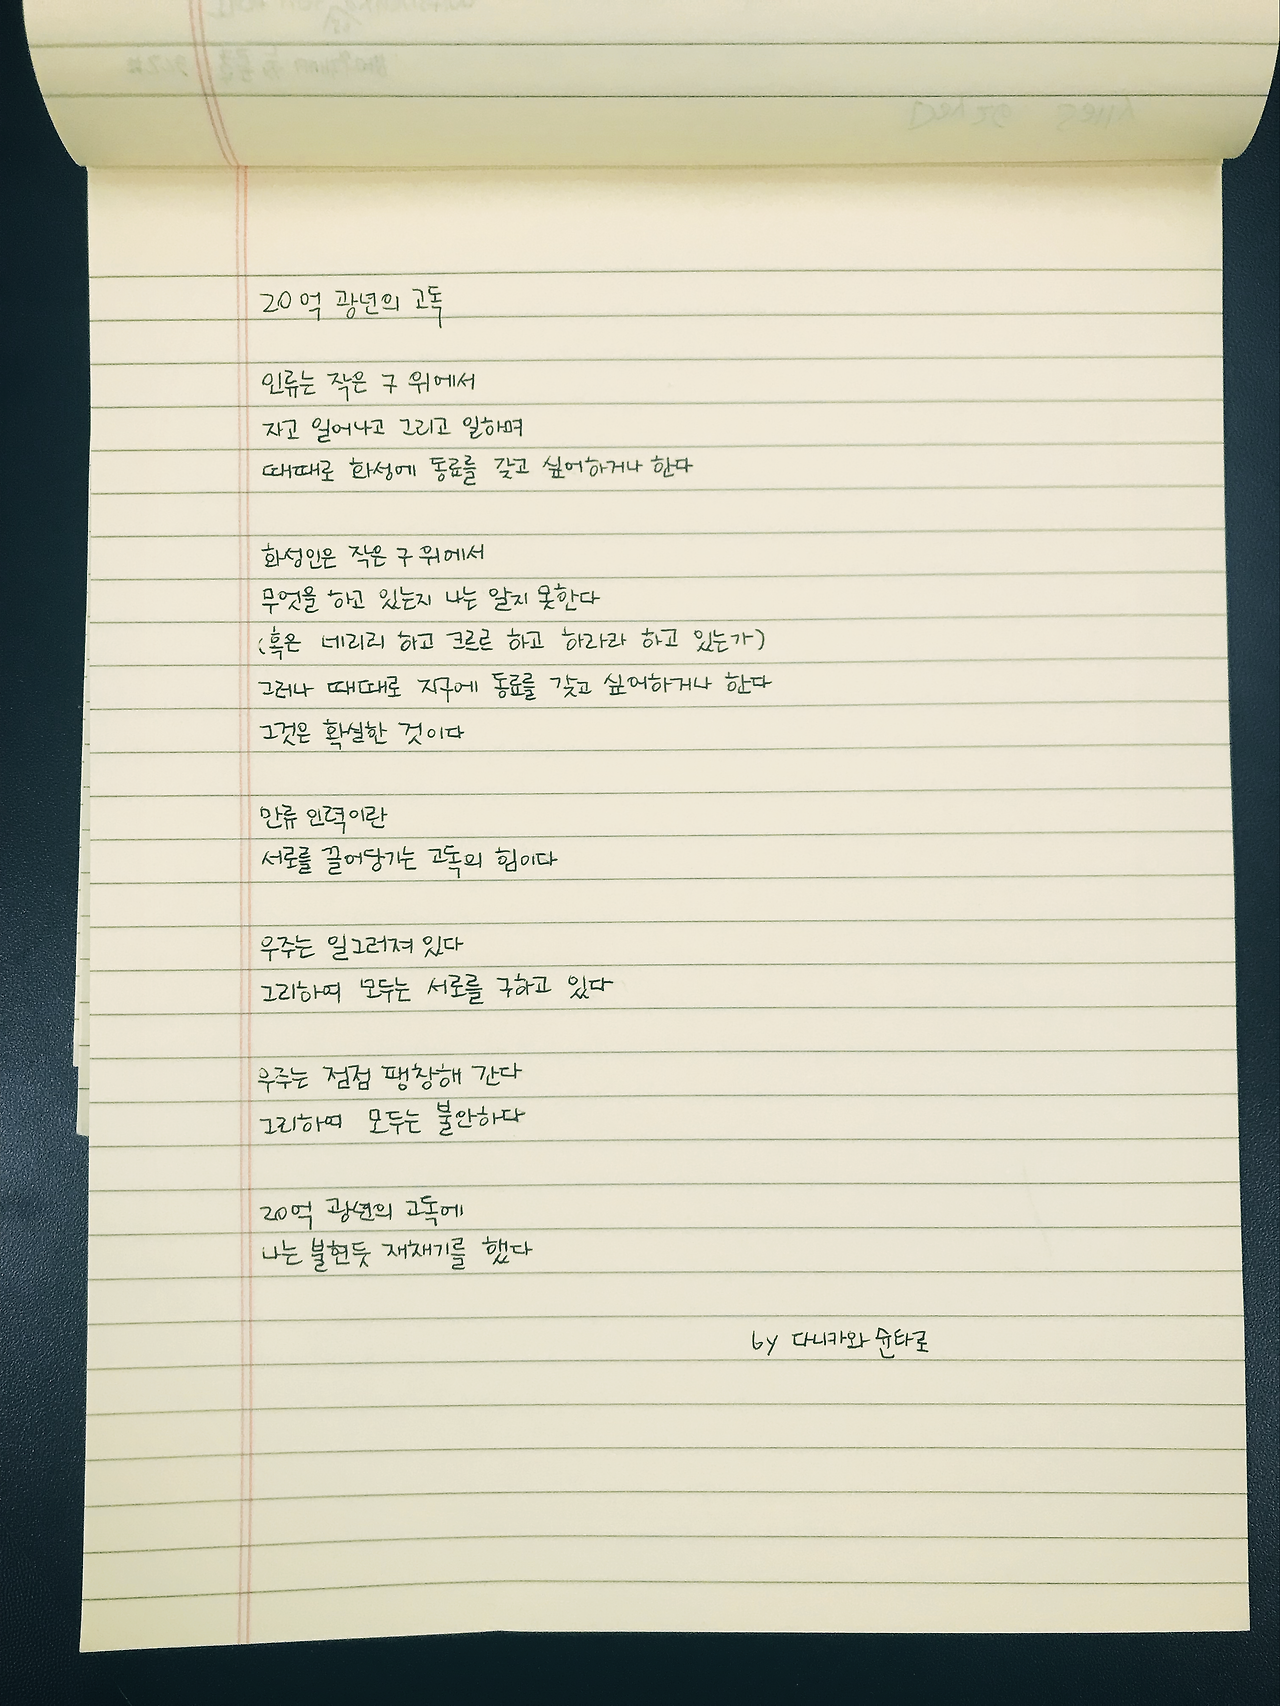 20억 광년의 고독
인류는 작은 구 위에서
자고 일어나고 그리고 일하며
때때로 화성에 동료를 갖고 싶어하거나 한다
화성인은 작은 구 위에서
무엇을 하고 있는지 나는 알지 못한다
(혹은 네리리 하고 크르르 하고 하라라 하고 있는가)
그러나 때때로 지구에 동료를 갖고 싶어하거나 한다
그것은 확실한 것이다
만류 인력이란
서로를 끌어당기는 고독의 힘이다
우주는 일그러져 있다
그리하여 모두는 서로를 구하고 있다
우주는 점점 팽창해 간다
그리하여 모두는 불안하다
20억 광년의 고독에
나는 불현듯 재채기를 했다
by 다니카와 슌타로